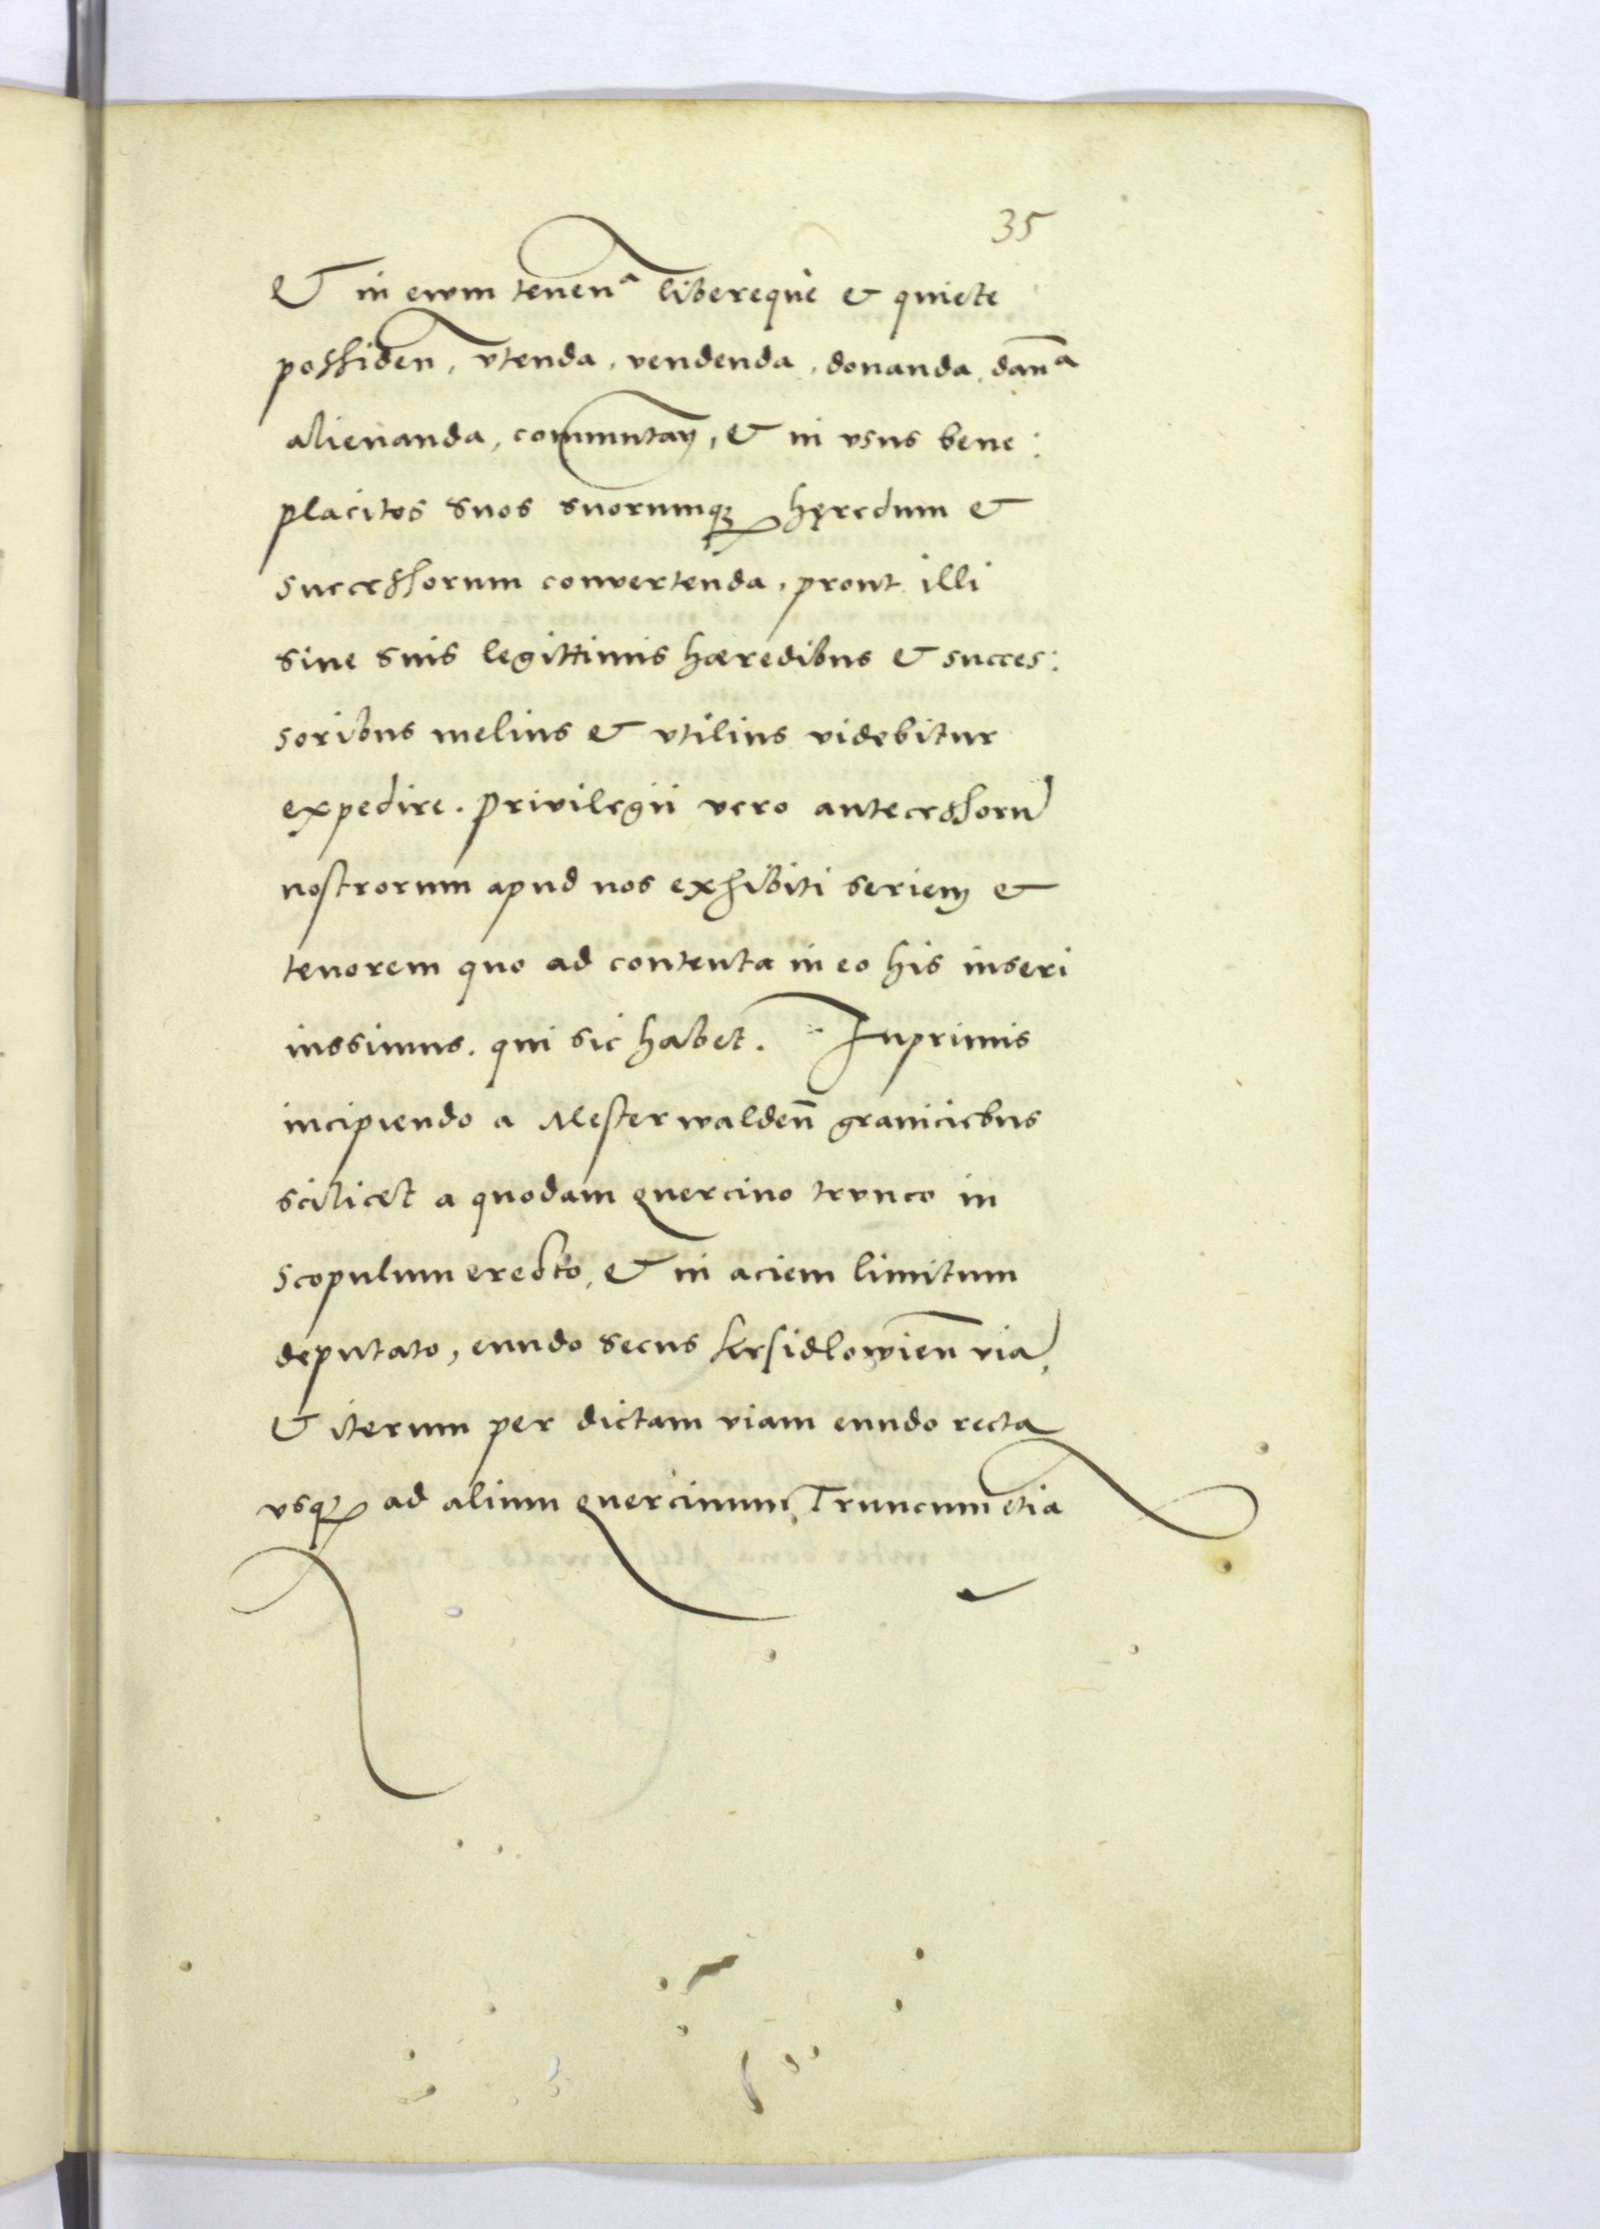 35
& in ewm tenenᵃ libereque & quiete
possiden̄, vtenda, vendenda, donanda, dan̄ᵃ
alienanda, commutan̄, & in vsus bene:
placitos suos suorumqꝫ hęredum &
successorum convertenda, prout illi
sive suis legittimis hæredibus & succes:
soribus melius & vtilius videbitur
expedire. Privilegii vero antecessorū
nostrorum apud nos exhibiti seriem &
tenorem quo ad contenta in eo his inseri
iussimus. qui sic habet. Inprimis
incipiendo a Mesterwalden̄ graniciebus
scilicet a quodam quercino trunco in
scopulum erecto, & in aciem limitum
deputato, eundo secus Kersidlowien̄ viā,
& iterum per dictam viam eundo recta
vsqꝫ ad alium quercinum Truncum etia